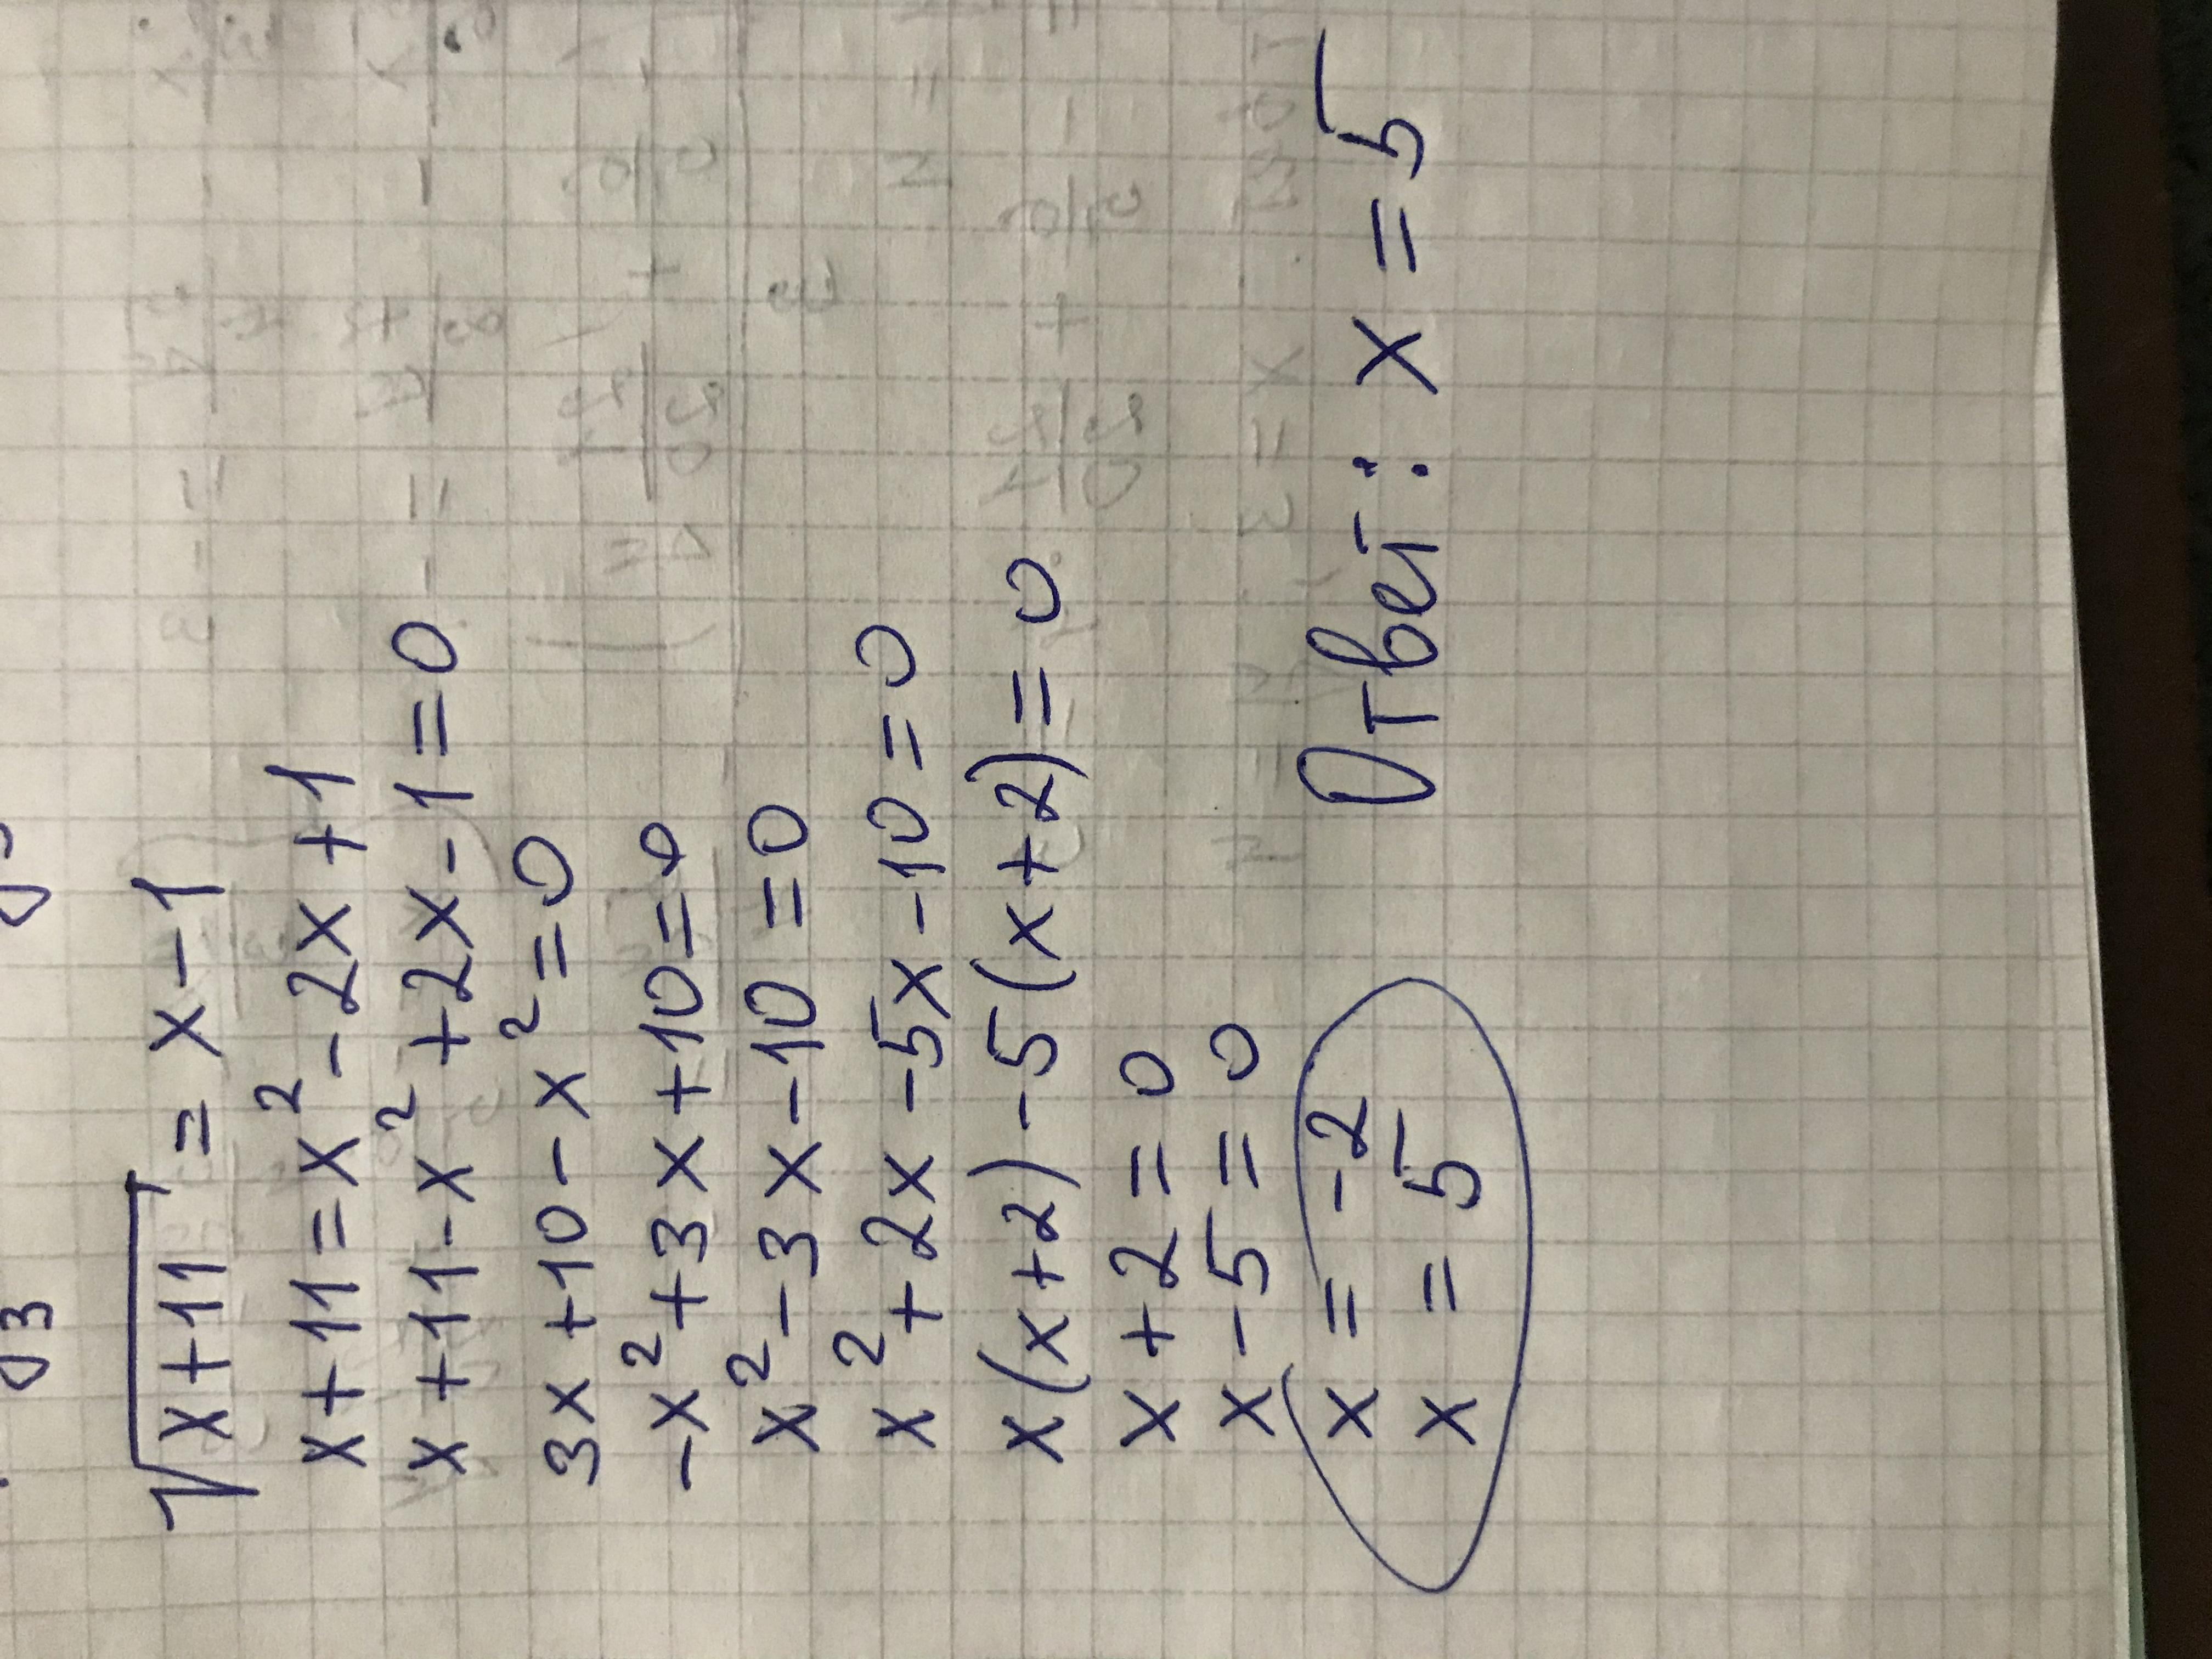 √x+11 = x-1
x+11=x²-2x+1
x+11-x²+2x-1=0
3x+10-x²=0
-x²+3x+10=0
x²-3x-10=0
x²+2x-5x-10=0
x(x+2)-5(x+2)=0
x+2=0
x-5=0
x=-2
x=5
Ответ: x=5